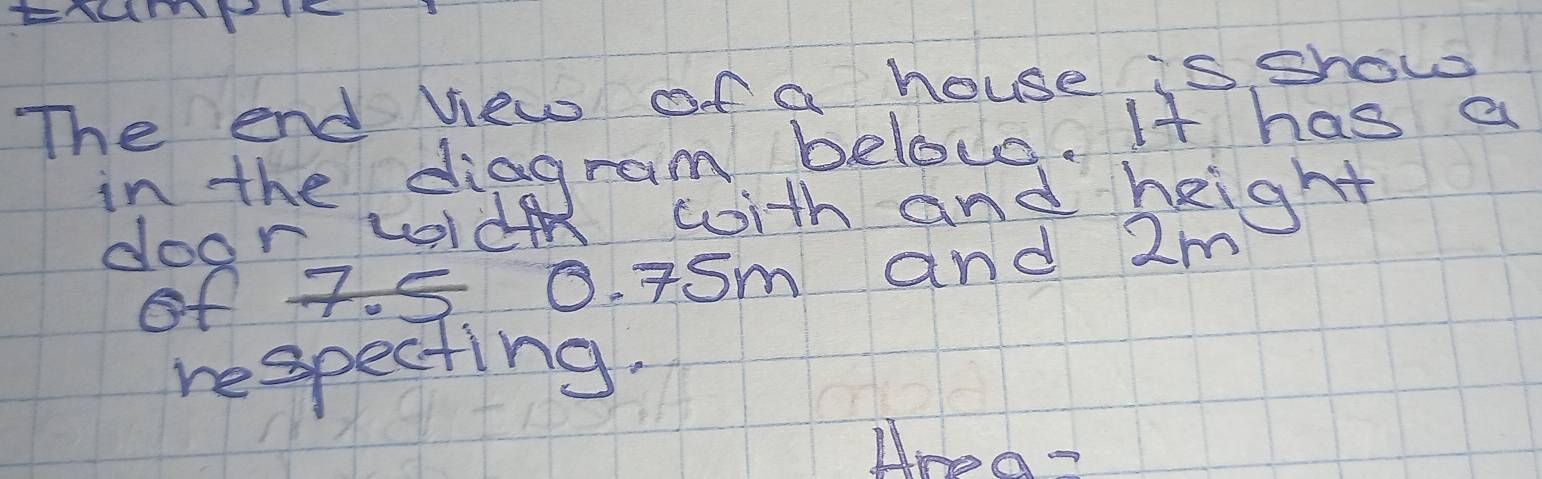 Example
The end view of a house is show
in the diagram below. It has a
door width with and height
of 7.5 0.75m and 2m
respecting.
Area=